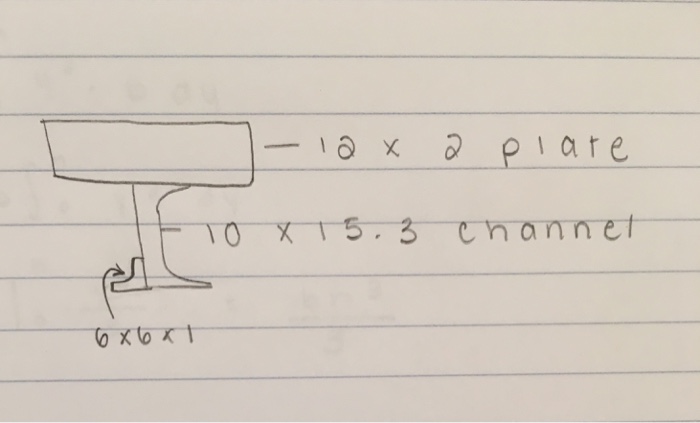 12 x 2 plate
10 x 15.3 channel
6x6x1